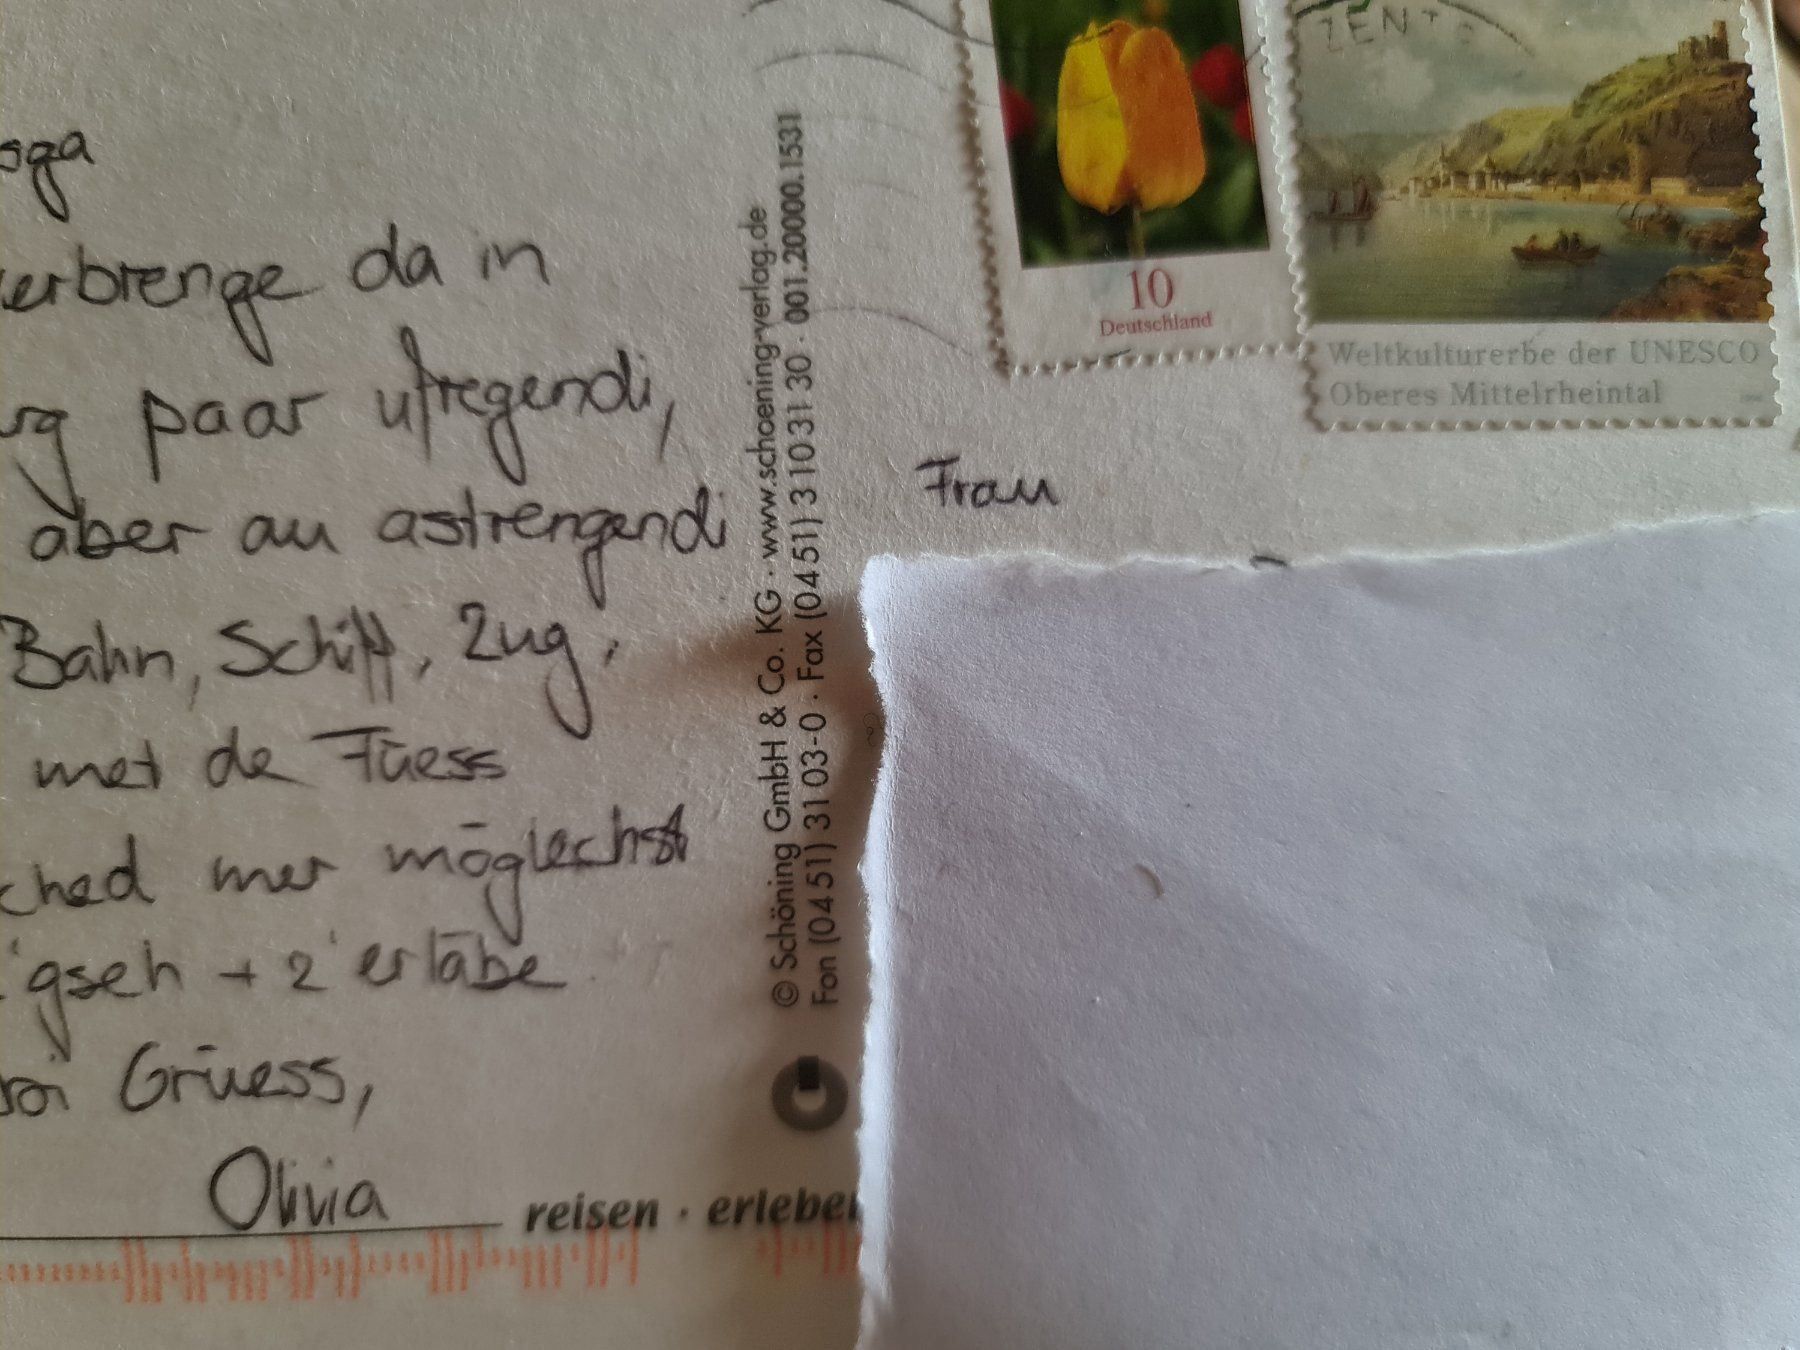 oga
erbrenge da in
rg paar ufregendi,
aber au astrengendi
Bahn, Schiff, Zug,
met de Füess
ched mer möglechst
z'gseh + z'erläbe
Grüess,
Olivia
reisen · erlebe
© Schöning GmbH & Co. KG · www.schoening-verlag.de
Fon (0451) 3103-0 · Fax (0451) 3103130 · 001.20000.1531
ZENT
10
Deutschland
Weltkulturerbe der UNESCO
Oberes Mittelrheintal
Frau